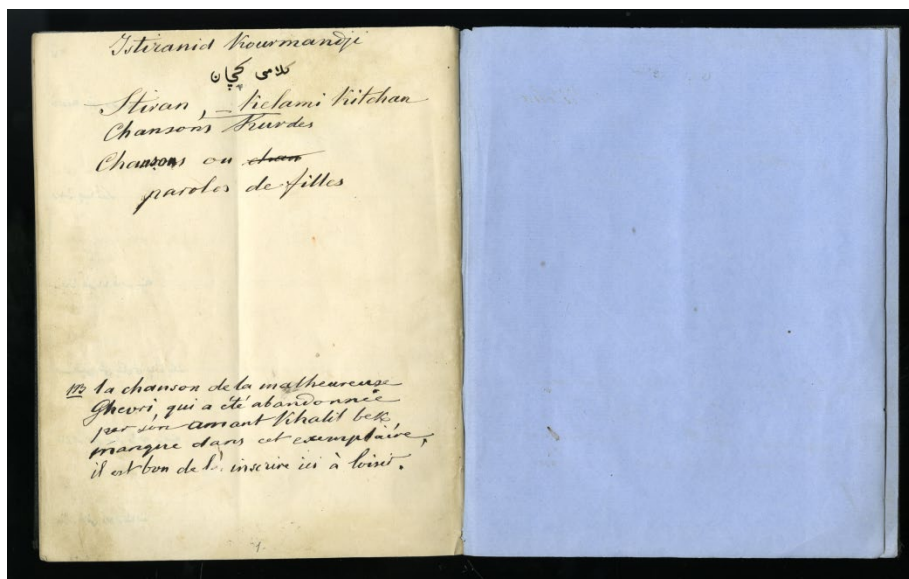 Istiranid Kourmandji
کلامی کچان
Stiran, – Kelami Kitchan
Chansons Kurdes
Chansons ou chan
paroles de filles
NB la chanson de la malheureuse
Ghevri, qui a été abandonnée
per son amant Khalil bek
manque dans cet exemplaire,
il est bon de l' inscrire ici à loisir.